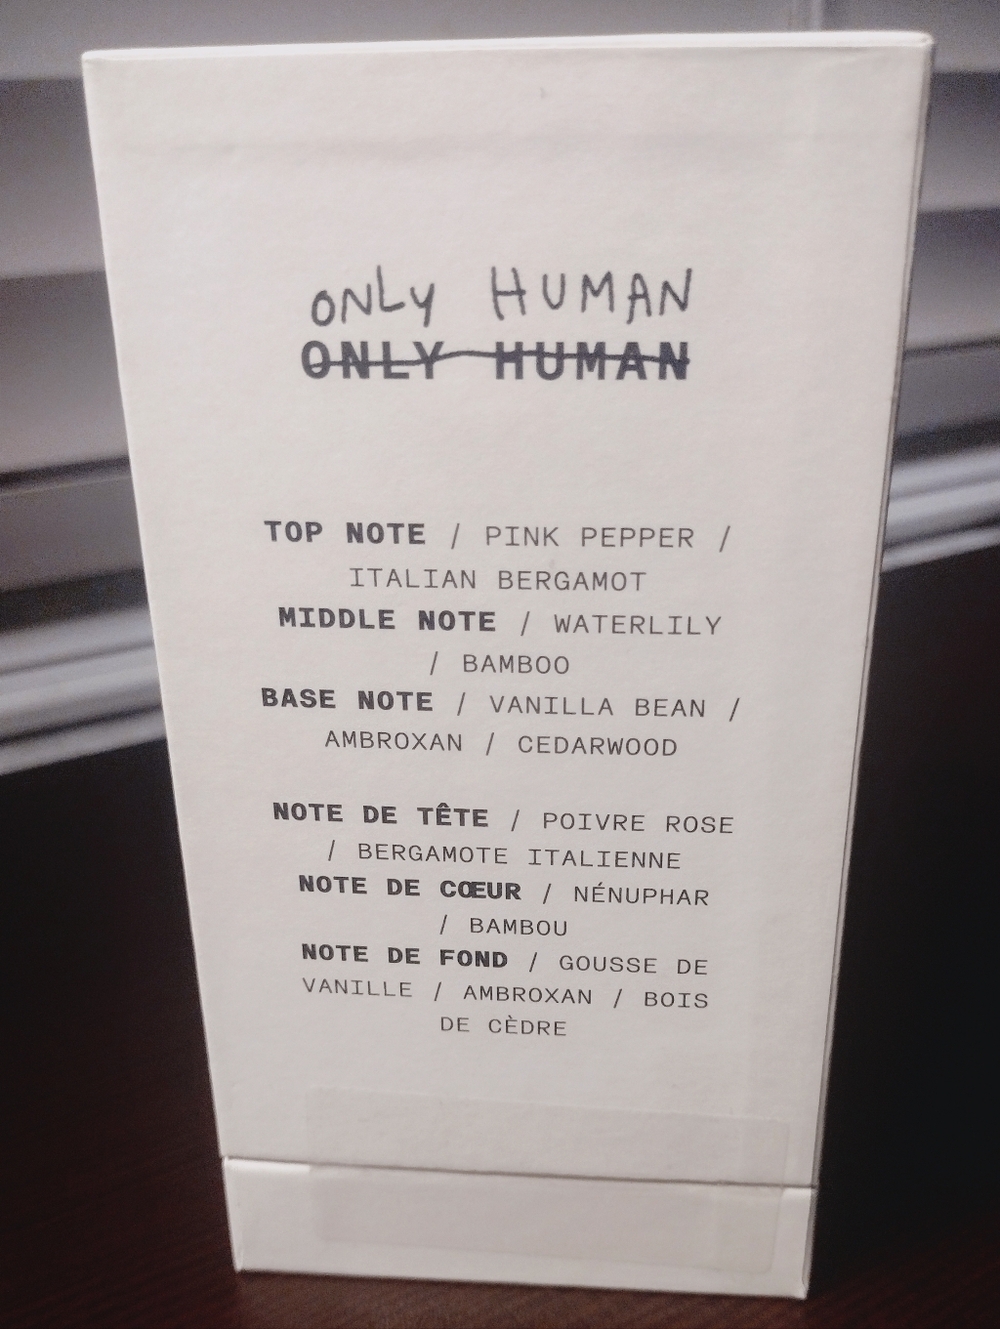 ONLY HUMAN
ONLY HUMAN
TOP NOTE / PINK PEPPER /
ITALIAN BERGAMOT
MIDDLE NOTE / WATERLILY
/ BAMBOO
BASE NOTE / VANILLA BEAN /
AMBROXAN / CEDARWOOD
NOTE DE TÊTE / POIVRE ROSE
/ BERGAMOTE ITALIENNE
NOTE DE CŒUR / NÉNUPHAR
/ BAMBOU
NOTE DE FOND / GOUSSE DE
VANILLE / AMBROXAN / BOIS
DE CÈDRE